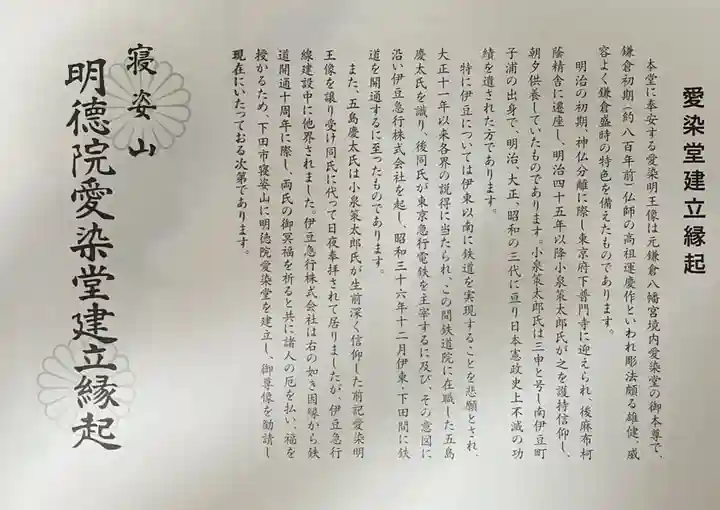 愛染堂建立縁起
本堂に奉安する愛染明王像は元鎌倉八幡宮境内愛染堂の御本尊で、
鎌倉初期(約八百年前)仏師の高祖運慶作といわれ彫法頗る雄健、威
容よく鎌倉盛時の特色を備えたものであります。
明治の初期、神仏分離に際し東京府下普門寺に迎えられ、後麻布柯
蔭精舎に遷座し、明治四十五年以降小泉策太郎氏が之を護持信仰し、
朝夕供養していたものであります。小泉策太郎氏は三申と号し南伊豆町
子浦の出身で、明治、大正、昭和の三代に亘り日本憲政史上不滅の功
績を遺された方であります。
特に伊豆については伊東以南に鉄道を実現することを悲願とされ、
大正十一年以来各界の説得に当たられ、この間鉄道院に在職した五島
慶太氏を識り、後同氏が東京急行電鉄を主宰するに及び、その意図に
沿い伊豆急行株式会社を起し、昭和三十六年十二月伊東、下田間に鉄
道を開通するに至ったものであります。
また、五島慶太氏は小泉策太郎氏が生前深く信仰した前記愛染明
王像を譲り受け同氏に代って日夜奉拝されて居りましたが、伊豆急行
線建設中に他界されました。伊豆急行株式会社は右の如き因縁から鉄
道開通十周年に際し、両氏の御冥福を祈ると共に諸人の厄を払い、福を
授かるため、下田市寝姿山に明徳院愛染堂を建立し、御尊像を勧請し
現在にいたっておる次第であります。
寝姿山
明德院愛染堂建立縁起